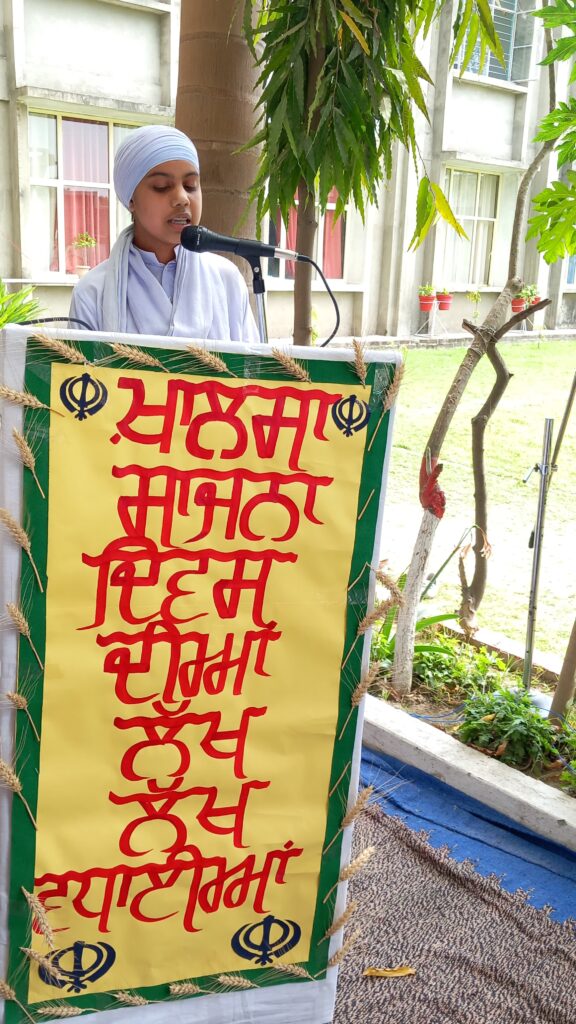 ਖ਼ਾਲਸਾ
ਸਾਜਨਾ
ਦਿਵਸ
ਦੀਆਂ
ਲੱਖ
ਲੱਖ
ਵਧਾਈਆਂ